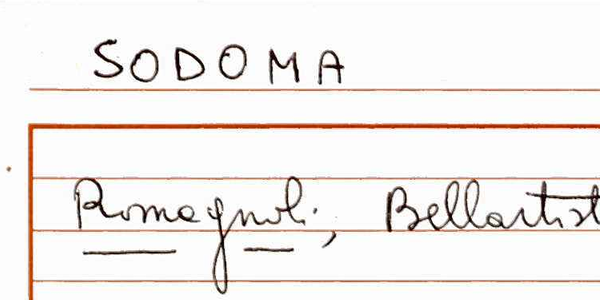 SODOMA
Romagnoli, Bellartist